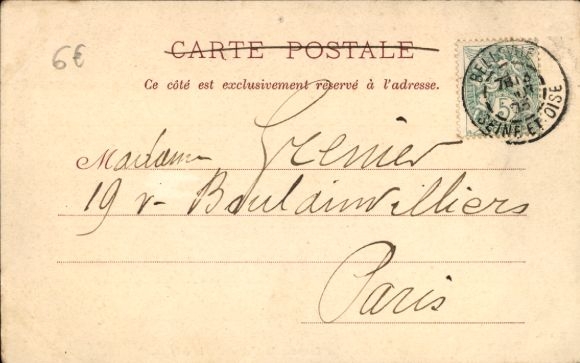 6€
CARTE POSTALE
Ce côté est exclusivement réservé à l'adresse.
BELLEVUE
SEINE-ET-OISE
5
Madame Grenier
19 r. Boulainvilliers
Paris